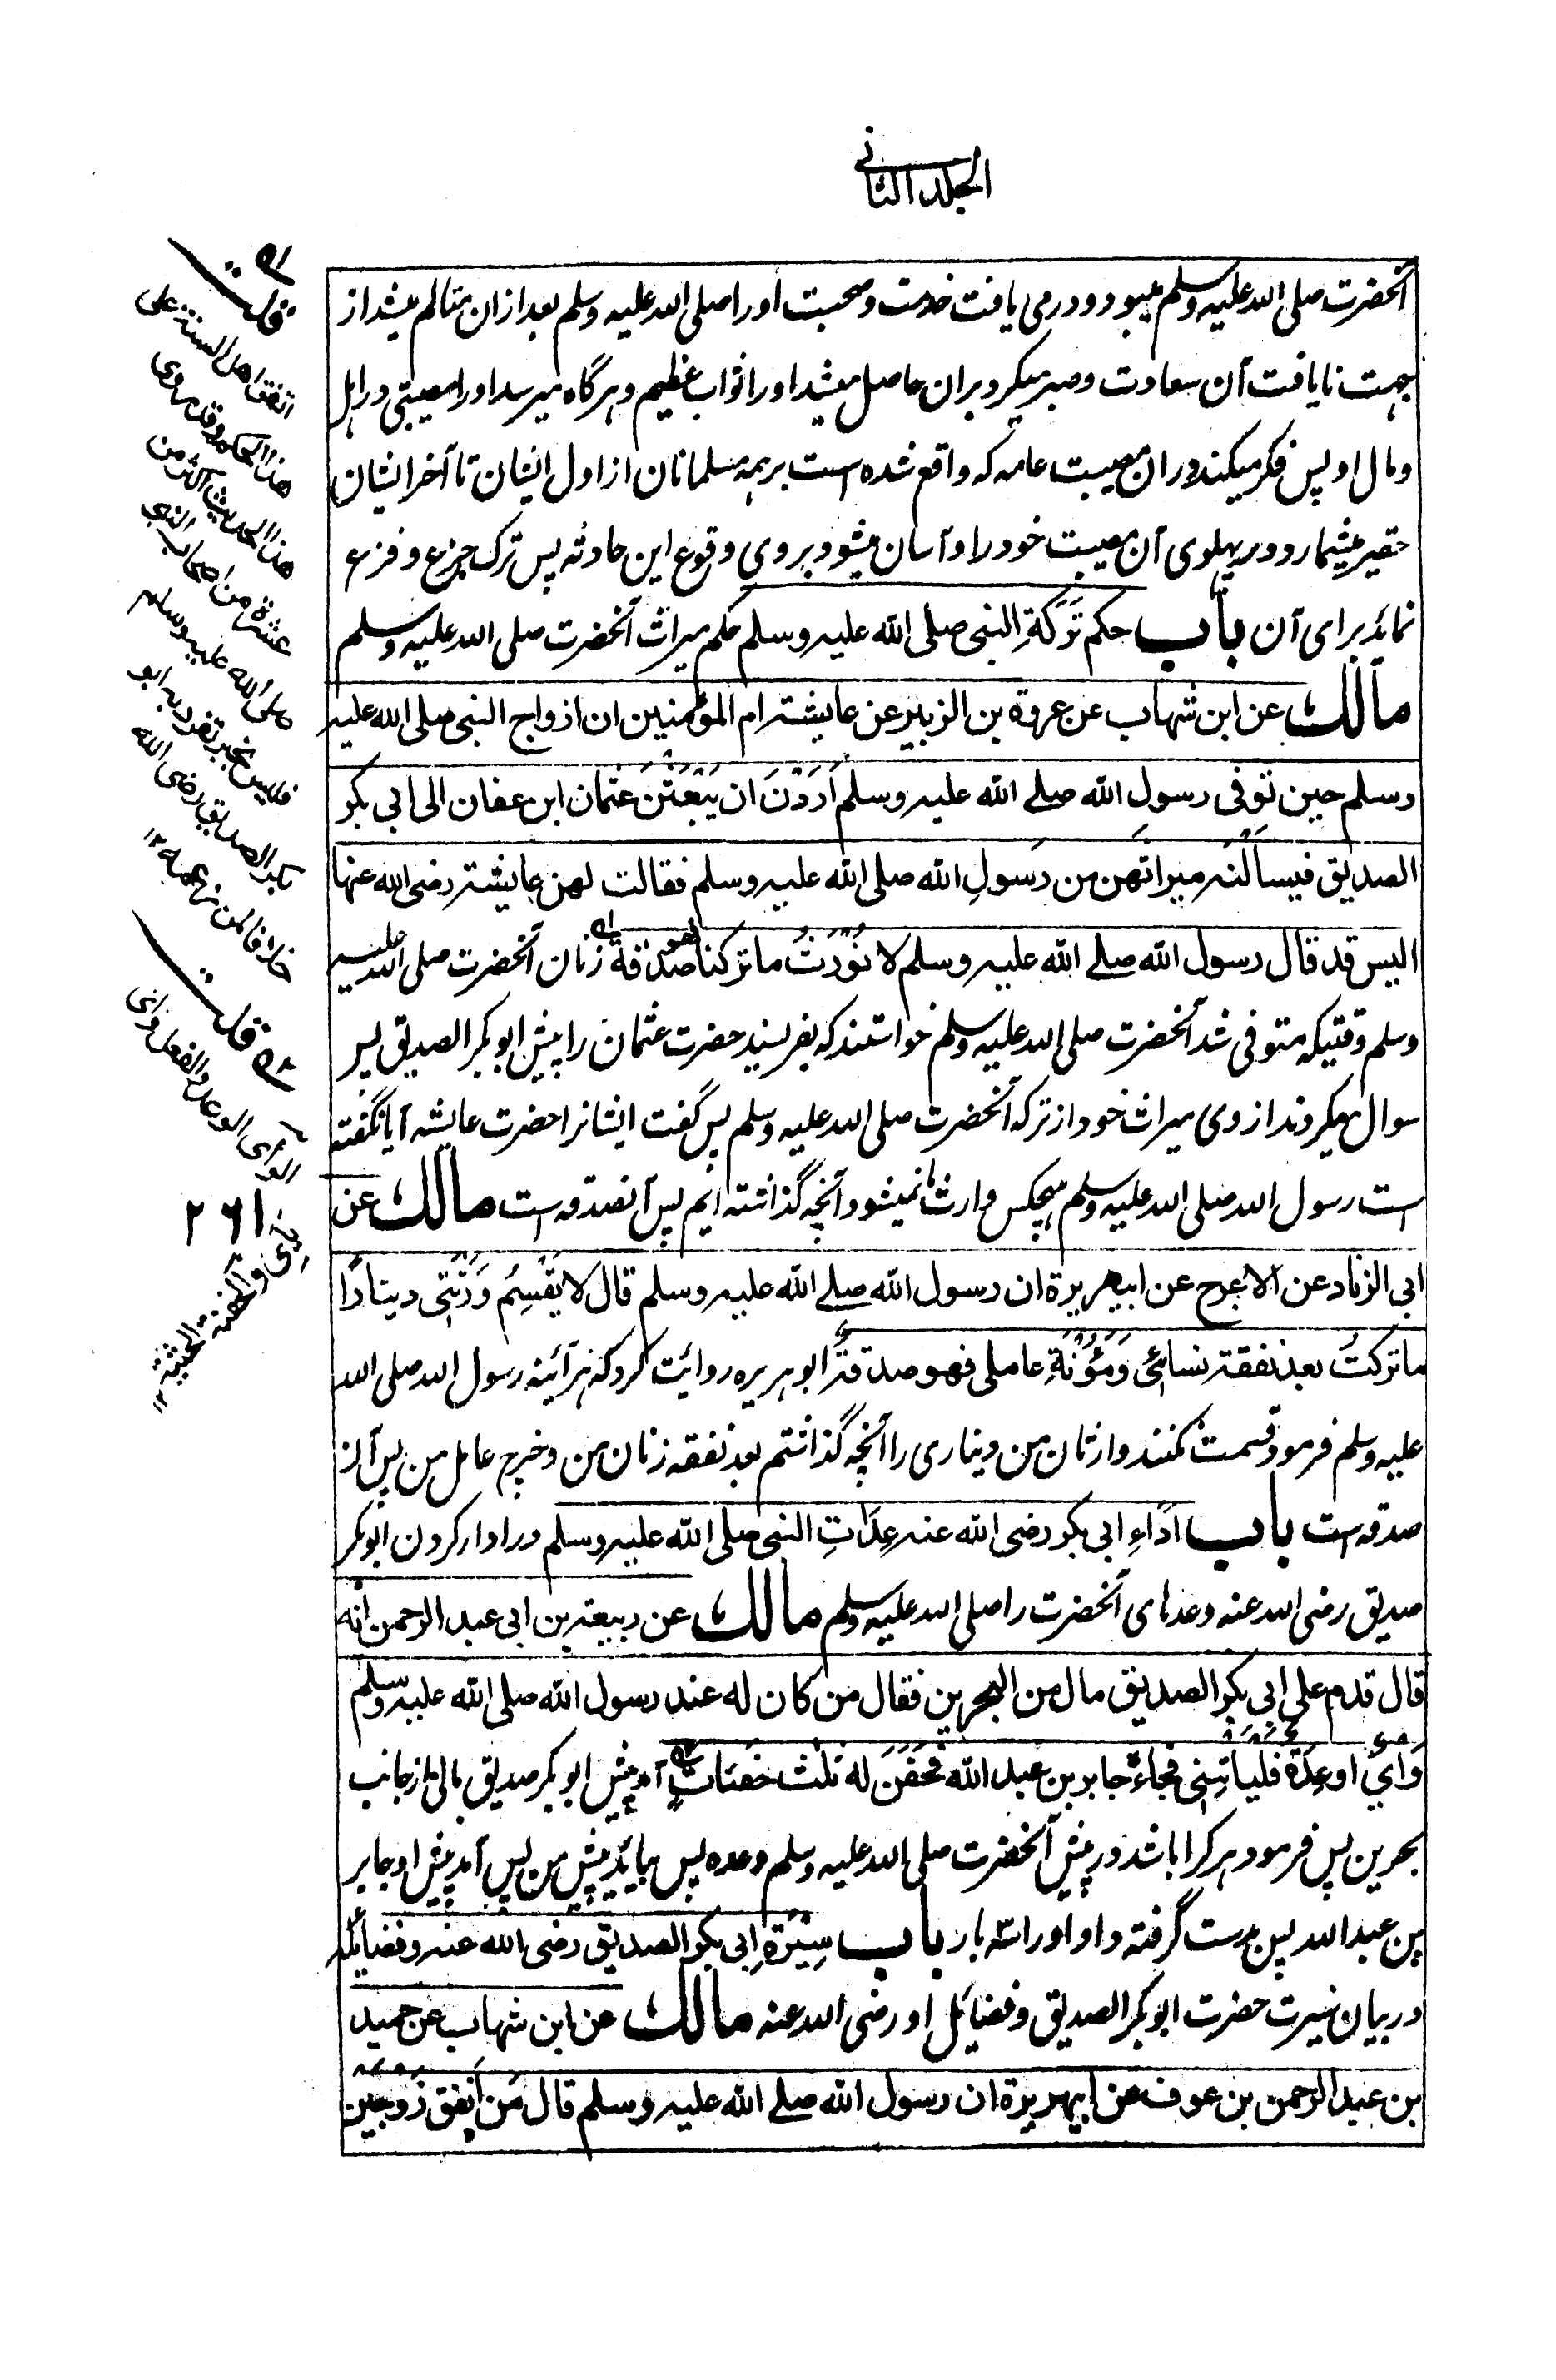 الجلد الثانی
آنحضرت صلی الله علیه وسلم میبود و در می یافت خدمت و صحبت او را صلی الله علیه وسلم بعد ازان متالم میشد از
جهت نایافت آن سعادت و صبر میکرد بران حاصل میشد او را ثواب عظیم و هرگاه میرسد او را مصیبتی در اهل
و مال او پس فکر میکند دران مصیبت عامه که واقع شده است بر همه مسلمانان از اول ایشان تا آخر ایشان
حقیر میشمارد در پهلوی آن مصیبت خود را و آسان میشود بر وی وقوع این حادثه پس ترک جزع و فزع
نماید برای آن باب حکم تَرَکَةِ النبی صلی الله علیه وسلم حکم میراث آنحضرت صلی الله علیه وسلم
مالك عن ابن شهاب عن عروة بن الزبیر عن عایشة ام المؤمنین ان ازواج النبی صلی الله علیه
وسلم حین توفی رسول الله صلے الله علیه وسلم اَرَدْنَ ان یَبْعَثْنَ عثمان ابن عفان الی ابی بکر
الصدیق فیسألنه میراثهن من رسولِ الله صلی الله علیه وسلم فقالت لهن عایشة رضی الله عنها
الیس قد قال رسول الله صلے الله علیه وسلم لا نُوْرَثُ ما ترکنا فهو صدقة زنان آنحضرت صلی الله علیه
وسلم وقتیکه متوفی شد آنحضرت صلی الله علیه وسلم خواستند که بفرسیند حضرت عثمان را پیش ابوبکر الصدیق پس
سوال میکردند از وی میراث خود از ترکه آنحضرت صلی الله علیه وسلم پس گفت ایشانرا حضرت عایشه آیا نگفته
است رسول الله صلی الله علیه وسلم هیچکس وارث ما نمیشود آنچه گذاشته ایم پس آنصدقه است مالك عن
ابی الزناد عن الاعرج عن ابیهریرة ان رسول الله صلے الله علیه وسلم قال لا یَقْسِمُ وَرَثَتِی دینارًا
ما ترکتُ بعد نفقة نسائی وَمَؤُنَةِ عاملی فهو صدقة ابو هریره روایت کرد که هر آئینه رسول الله صلی الله
علیه وسلم فرمود قسمت نکنند وارثان من دیناری را آنچه گذاشتم بعد نفقه زنان من و خرچ عامل من پس آن
صدقه است باب اَدَاءِ ابی بکر رضی الله عنه عِدَاتِ النبی صلی الله علیه وسلم در ادا کردن ابوبکر
صدیق رضی الله عنه وعدهای آنحضرت را صلی الله علیه وسلم مالك عن ربیعة بن ابی عبد الرحمن انه
قال قدم علی ابی بکر الصدیق مال من البحرین فقال من کان له عند رسول الله صلی الله علیه وسلم
وَأْیٌ او عِدَةٌ فلیأتِنِی فجاءه جابر بن عبد الله فحَفَنَ له ثلث حَفَنَاتٍ آمد پیش ابوبکر صدیق مالی از جانب
بحرین پس فرمود هر کرا باشد در پیش آنحضرت صلی الله علیه وسلم وعده پس بیاید پیش من پس آمد پیش او جابر
بن عبد الله پس بدست گرفته داد او را سه بار باب سِیْرَةِ ابی بکر الصدیق رضی الله عنه وفضائله
در بیان سیرت حضرت ابوبکر الصدیق و فضایل او رضی الله عنه مالك عن ابن شهاب عن حمید
بن عبد الرحمن بن عوف عن ابیهریرة ان رسول الله صلے الله علیه وسلم قال مَن اَنفق زَوجَین
قلت
اتفق اهل السنة علی
هذا الحکم وقد روی
هذا الحدیث اکثر من
عشرة من اصحاب النبی
صلی الله علیه وسلم
فلیس بخبر تفرد به ابو
بکر الصدیق رضی الله
خلافا لمن زعمه ۱۲
قلت
الوأی الوعد والفعل وأی
۲۶۱